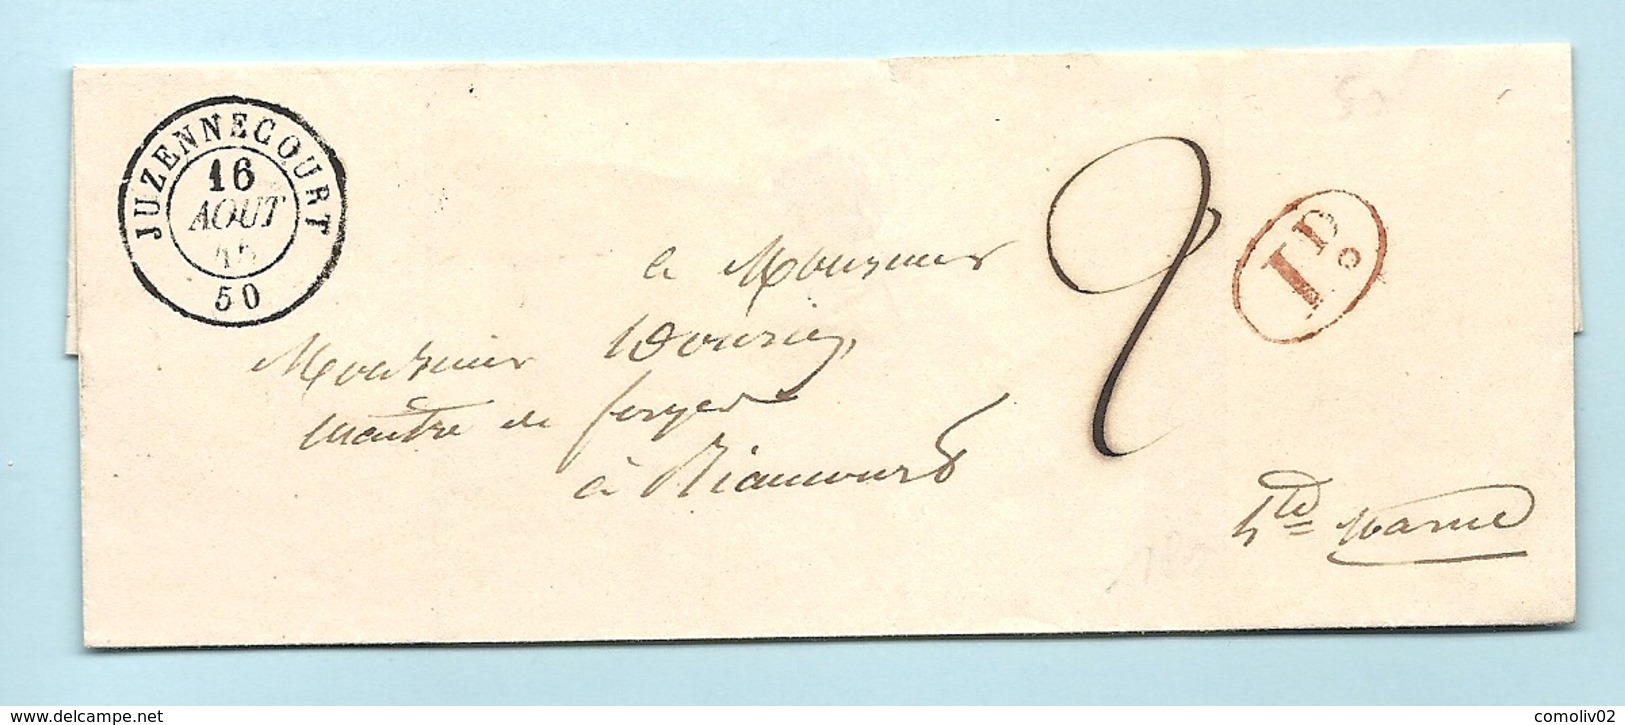 JUZENNECOURT
16
AOUT
45
50
50
2
1D.
a Monsieur
Monsieur Douriez,
maitre de forges
à Riaucourt
hte Marne
www.delcampe.net
comoliv02